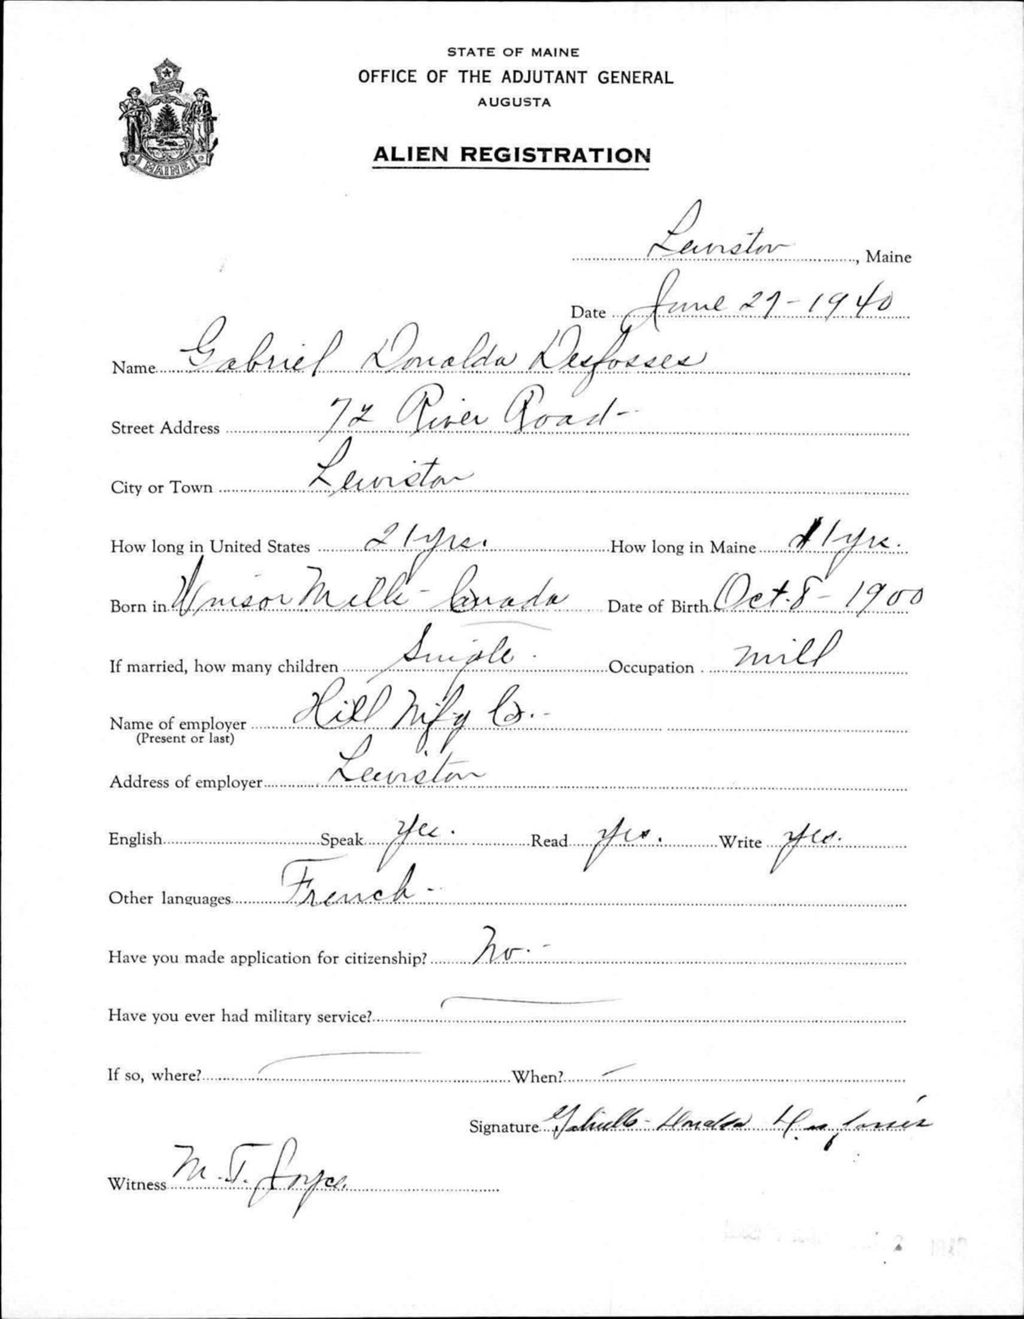 STATE OF MAINE
OFFICE OF THE ADJUTANT GENERAL
AUGUSTA
MAINE
ALIEN REGISTRATION
Lewiston, Maine
Date June 27-1940
Name Gabriel Donalda Desfosses
Street Address 72 River Road-
City or Town Lewiston
How long in United States 21 yrs. How long in Maine 11 yrs.
Born in Winsor Mills- Canada Date of Birth Oct. 8-1900
If married, how many children Single. Occupation mill
Name of employer Hill Mfg Co.-
(Present or last)
Address of employer Lewiston
English Speak Yes. Read Yes. Write Yes.
Other languages French-
Have you made application for citizenship? No.-
Have you ever had military service?
If so, where? When?
Signature Donalda Desfosses
Witness M.T. Joyce